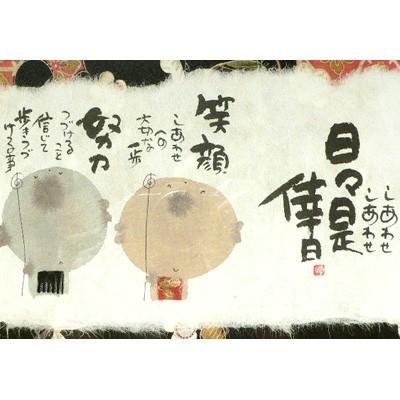 日々是
倖日
しあわせ
しあわせ
笑顔
しあわせ
への
大切な
一歩
努力
つづける
こと
信じて
歩きつづ
ける事